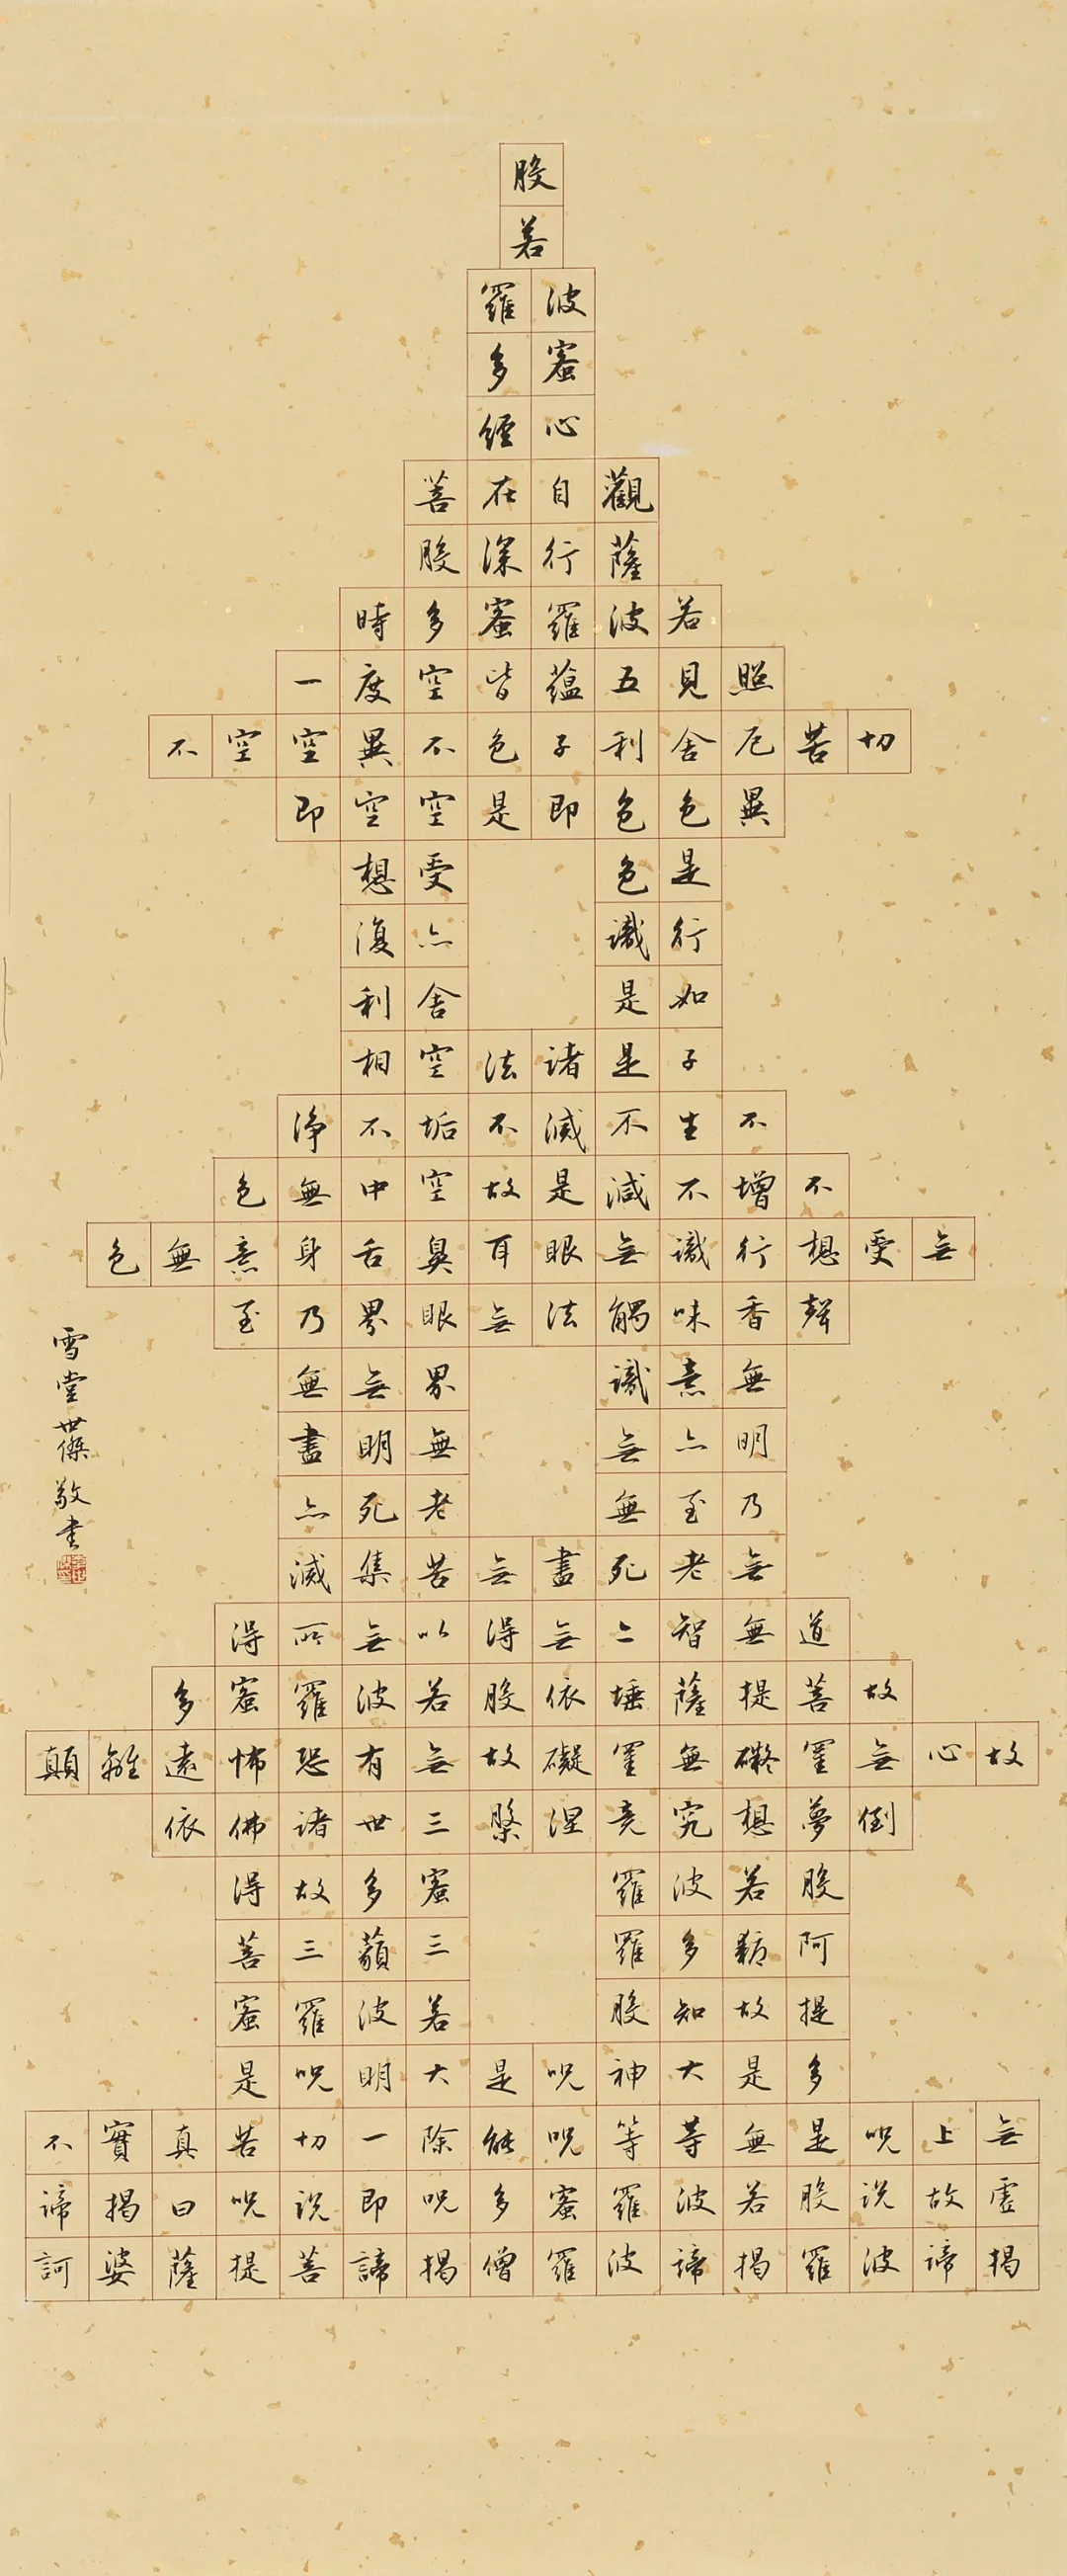 般
若
波羅
蜜多
心經
觀自在菩
薩行深般
若波羅蜜多時
照見五蘊皆空度一
切苦厄舍利子色不異空空不
異色色即是空空即
是色受想
行識亦復
如是舍利
子是諸法空相
不生不滅不垢不淨
不增不減是故空中無色
無受想行識無眼耳鼻舌身意無色
聲香味觸法無眼界乃至
無意識界無無
明亦無無明盡
乃至無老死亦
無老死盡無苦集滅
道無智亦無得以無所得
故菩提薩埵依般若波羅蜜多
故心無罣礙無罣礙故無有恐怖遠離顛
倒夢想究竟涅槃三世諸佛依
般若波羅蜜多故得
阿耨多羅三藐三菩
提故知般若波羅蜜
多是大神呪是大明呪是
無上呪是無等等呪能除一切苦真實不
虛故說般若波羅蜜多呪即說呪曰揭諦
揭諦波羅揭諦波羅僧揭諦菩提薩婆訶
雪堂世傑敬書